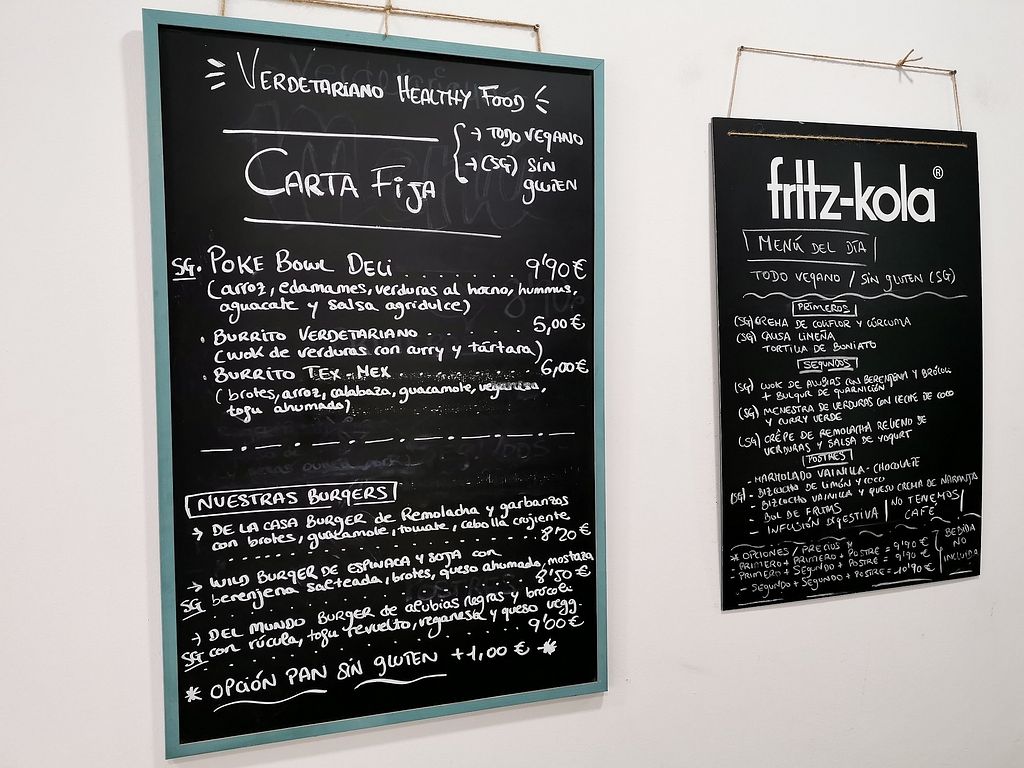 VERDETARIANO HEALTHY FOOD
→ TODO VEGANO
→ (SG) SIN
GLUTEN
CARTA FIJA
SG. POKE BOWL DELI . . . . . . . . . 9'90 €
(arroz, edamames, verduras al horno, hummus,
aguacate y salsa agridulce)
· BURRITO VERDETARIANO . . . . . . . 5,00 €
(wok de verduras con curry y tártara)
· BURRITO TEX-MEX . . . . . . . . . 6,00 €
(brotes, arroz, calabaza, guacamole, veganesa,
tofu ahumado)
NUESTRAS BURGERS
→ DE LA CASA BURGER de Remolacha y garbanzos
con brotes, guacamole, tomate, cebolla crujiente
8'20 €
→ WILD BURGER DE ESPINACA Y SOJA con
SG berenjena salteada, brotes, queso ahumado, mostaza
8'50 €
→ DEL MUNDO BURGER de alubias negras y brócoli
SG con rúcula, tofu revuelto, veganesa y queso vegg.
9'00 €
* OPCIÓN PAN SIN GLUTEN +1,00 € *
fritz-kola®
MENÚ DEL DÍA
TODO VEGANO / SIN GLUTEN (SG)
PRIMEROS
(SG) CREMA DE COLIFLOR Y CÚRCUMA
(SG) CAUSA LIMEÑA
TORTILLA DE BONIATO
SEGUNDOS
(SG) WOK DE ALUBIAS CON BERENJENA Y BRÓCOLI
+ BULGUR DE GUARNICIÓN
(SG) MENESTRA DE VERDURAS CON LECHE DE COCO
Y CURRY VERDE
(SG) CRÊPE DE REMOLACHA RELLENO DE
VERDURAS Y SALSA DE YOGURT
POSTRES
- MARMOLADO VAINILLA-CHOCOLATE
(SG) - BIZCOCHO DE LIMÓN Y COCO
- BIZCOCHO VAINILLA Y QUESO CREMA DE NARANJA
- BOL DE FRUTAS
- INFUSIÓN DIGESTIVA
NO TENEMOS
CAFÉ
* OPCIONES / PRECIOS *
- PRIMERO + PRIMERO + POSTRE = 9'90 €
- PRIMERO + SEGUNDO + POSTRE = 9'90 €
- SEGUNDO + SEGUNDO + POSTRE = 10'90 €
BEBIDA
NO
INCLUIDA